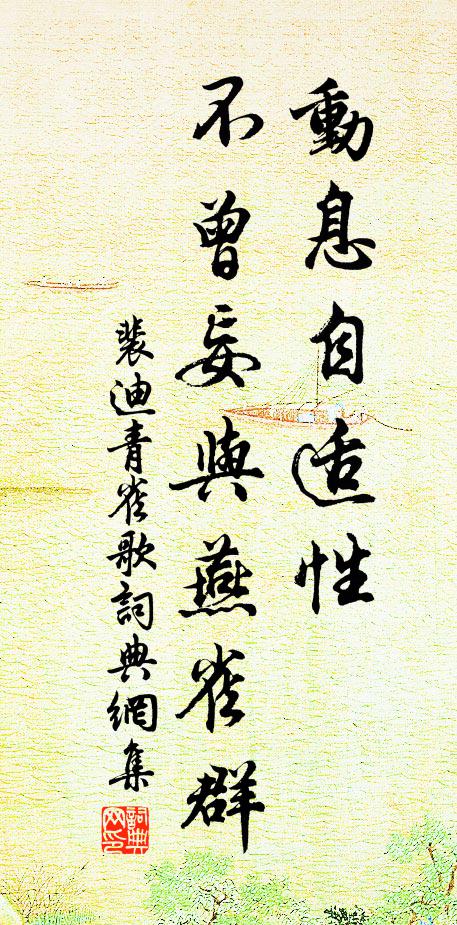 動息自适性
不曾妄與燕雀群
裴迪青雀歌詞典網集
詞典網印